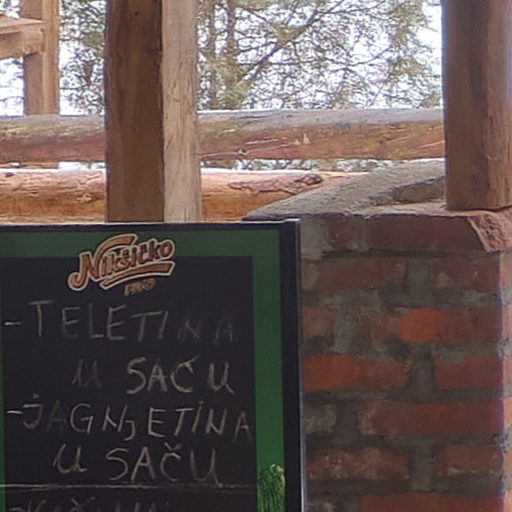 Nikšićko
PIVO
- TELETINA
U SAČU
- JAGNJETINA
U SAČU